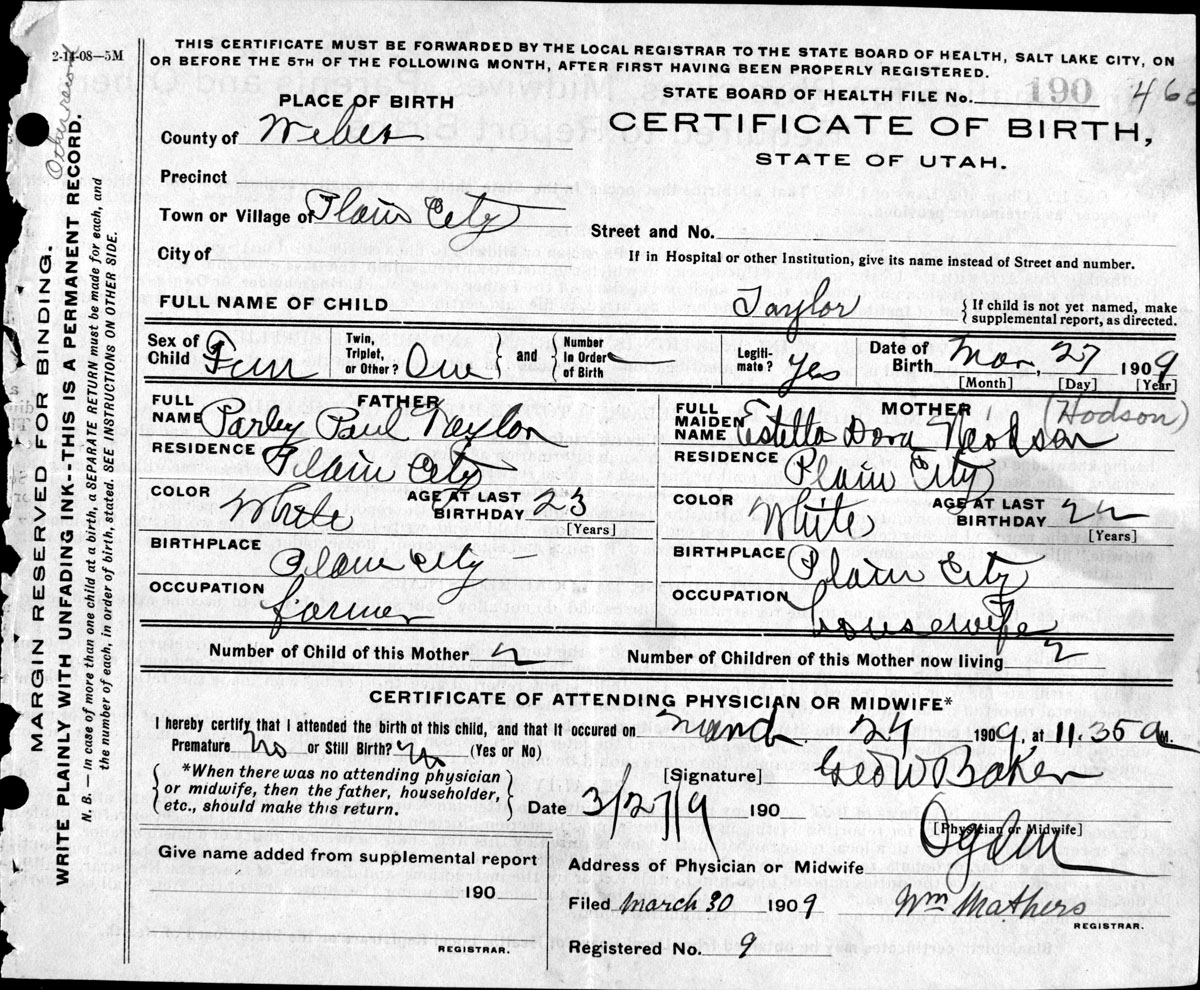 2-14-08—5M
THIS CERTIFICATE MUST BE FORWARDED BY THE LOCAL REGISTRAR TO THE STATE BOARD OF HEALTH, SALT LAKE CITY, ON
OR BEFORE THE 5TH OF THE FOLLOWING MONTH, AFTER FIRST HAVING BEEN PROPERLY REGISTERED.
STATE BOARD OF HEALTH FILE No. 190
CERTIFICATE OF BIRTH,
STATE OF UTAH.
PLACE OF BIRTH
County of Weber
Precinct
Town or Village of Plain City
Street and No.
City of
If in Hospital or other Institution, give its name instead of Street and number.
FULL NAME OF CHILD Taylor
If child is not yet named, make
supplemental report, as directed.
Sex of
Child Fem
Twin,
Triplet,
or Other? One
and
Number
In Order
of Birth
Legiti-
mate? Yes
Date of
Birth Mar. 27 1909
[Month] [Day] [Year]
FATHER
FULL
NAME Parley Paul Taylor
RESIDENCE Plain City
COLOR White
AGE AT LAST
BIRTHDAY 23
[Years]
BIRTHPLACE Plain City
OCCUPATION farmer
MOTHER
FULL
MAIDEN
NAME Estella Dora Hodson
(Hodson)
RESIDENCE Plain City
COLOR White
AGE AT LAST
BIRTHDAY 22
[Years]
BIRTHPLACE Plain City
OCCUPATION housewife
Number of Child of this Mother 2
Number of Children of this Mother now living 2
CERTIFICATE OF ATTENDING PHYSICIAN OR MIDWIFE*
I hereby certify that I attended the birth of this child, and that it occured on March 24 1909, at 11.35 a M.
Premature No or Still Birth? No (Yes or No)
*When there was no attending physician
or midwife, then the father, householder,
etc., should make this return.
[Signature] Geo W Baker
Date 3/27/9 190
[Physician or Midwife]
Address of Physician or Midwife Ogden
Give name added from supplemental report
190
REGISTRAR.
Filed March 30 1909
Wm Mathers
REGISTRAR.
Registered No. 9
MARGIN RESERVED FOR BINDING.
WRITE PLAINLY WITH UNFADING INK-THIS IS A PERMANENT RECORD.
N. B. — in case of more than one child at a birth, a SEPARATE RETURN must be made for each, and
the number of each, in order of birth, stated. SEE INSTRUCTIONS ON OTHER SIDE.